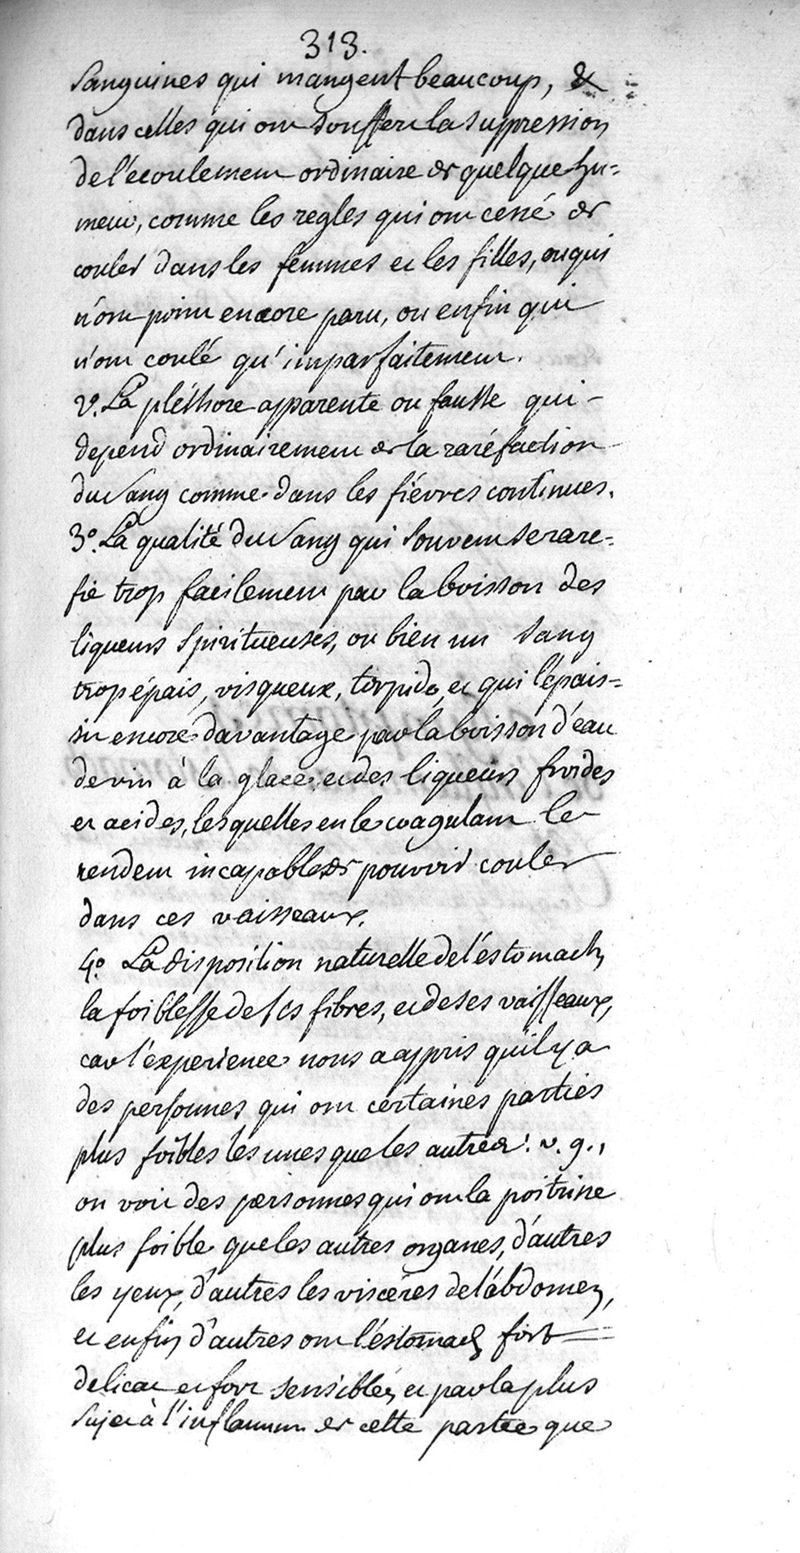 313.
sanguines qui mangent beaucoup, &
dans celles qui ont souffert la suppression
de l'ecoulement ordinaire de quelque hu=
meur, comme les regles qui ont cessé de
couler dans les femmes et les filles, ou qui
n'ont point encore paru, ou enfin qui
n'ont coulé qu'imparfaitement.
2°. La pléthore apparente ou fausse qui
depend ordinairement de la raréfaction
du sang comme dans les fiévres continues.
3°. La qualité du sang qui souvent se rare=
fie trop facilement par la boisson des
liqueurs spiritueuses, ou bien un sang
trop épais, visqueux, torpide, et qui s'épais=
sit encore davantage par la boisson d'eau
de vin à la glace et des liqueurs froides
et acides, lesquelles en le coagulant le
rendent incapable de pouvoir couler
dans ces vaisseaux.
4°. La disposition naturelle de l'éstomach,
la foiblesse de ses fibres, et de ses vaisseaux,
car l'éxperience nous a appris qu'il y a
des personnes qui ont certaines parties
plus foibles les unes que les autres: v. g.,
on voit des personnes qui ont la poitrine
plus foible que les autres organes, d'autres
les yeux, d'autres les visceres de l'ábdomen,
et enfin d'autres ont l'éstomach fort
delicat et fort sensible, et par la plus
sujet à l'inflamm. de cette partie que